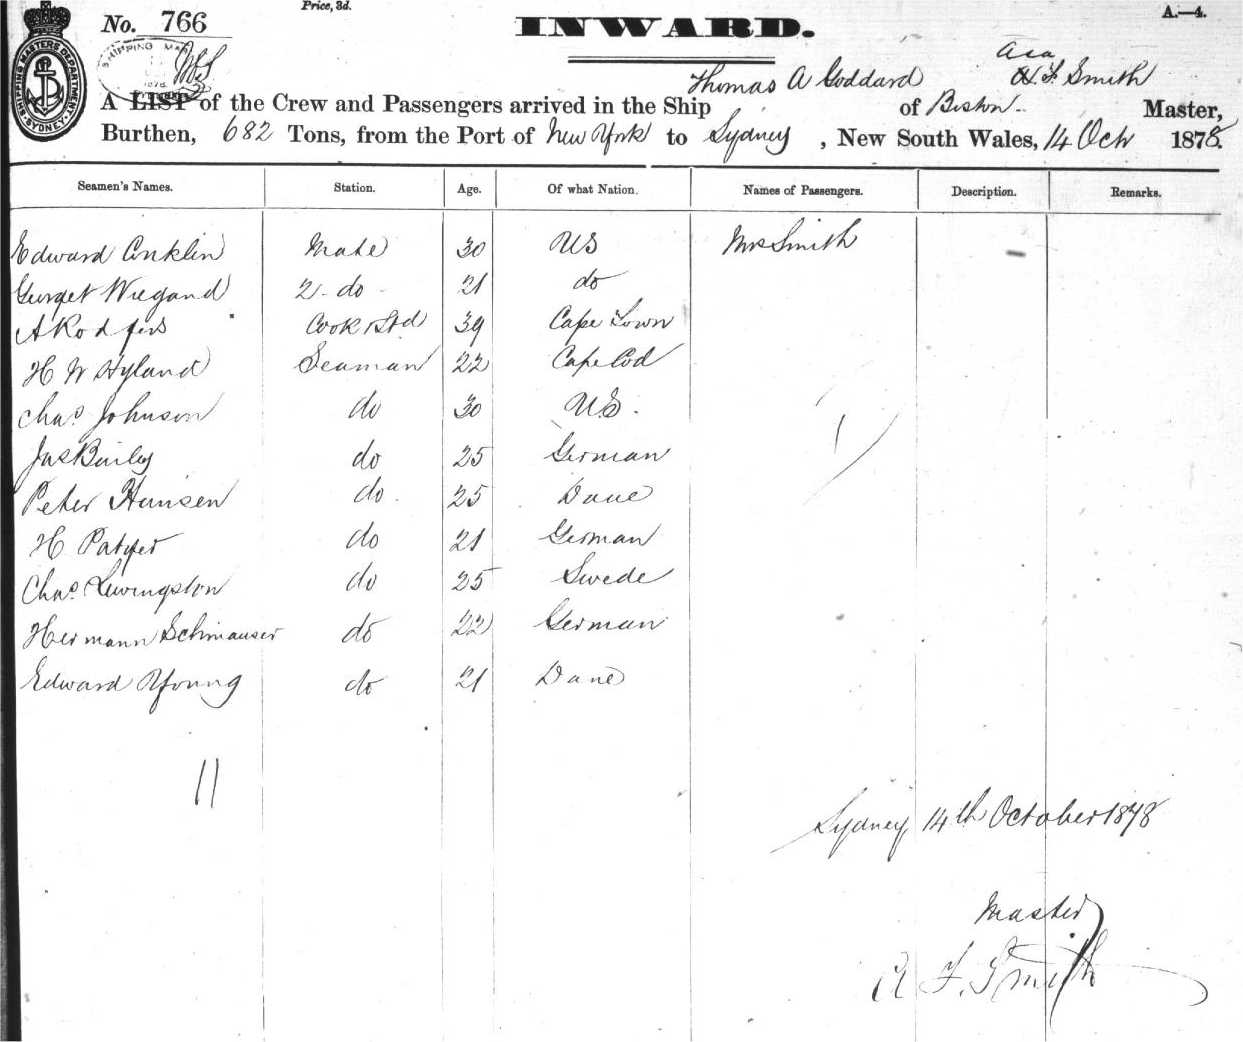 Price, 3d.
A.—4.
No. 766
INWARD.
SHIPPING MASTERS DEPARTMENT SYDNEY
SHIPPING MA
Asa
Thomas A Goddard F Smith
A LIST of the Crew and Passengers arrived in the Ship of Boston Master,
Burthen, 682 Tons, from the Port of New York to Sydney, New South Wales, 14 Oct 1878.
Seamen's Names. Station. Age. Of what Nation. Names of Passengers. Description. Remarks.
Edward Conklin Mate 30 US Mrs Smith —
Wiegand 2 do 21 do
Cook & Std 39 Cape Town
H W Hyland Seaman 22 Cape Cod
Chas. Johnson do 30 U.S.
Jas Bailey do 25 German
Peter Hansen do 25 Dane
H do 21 German
Chas. Livingston do 25 Swede
Hermann Schmauser do 22 German
Edward Young do 21 Dane
11 1
Sydney 14th October 1878
Master
A F. Smith